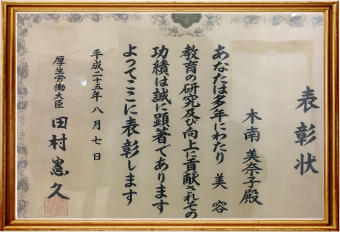 表彰状
木南 美奈子殿
あなたは多年にわたり 美容
教育の研究及び向上に貢献されその
功績は誠に顕著であります
よってここに表彰します
平成二十五年八月七日
厚生労働大臣 田村憲久